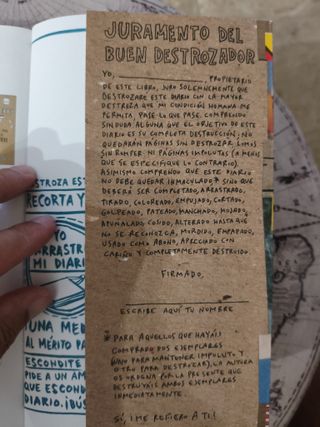 JURAMENTO DEL
BUEN DESTROZADOR
YO, ____________, PROPIETARIO
DE ESTE LIBRO, JURO SOLEMNEMENTE QUE
DESTROZARÉ ESTE DIARIO CON LA MAYOR
DESTREZA QUE MI CONDICIÓN HUMANA ME
PERMITA, PASE LO QUE PASE. COMPRENDO
SIN DUDA ALGUNA QUE EL OBJETIVO DE ESTE
DIARIO ES SU COMPLETA DESTRUCCIÓN; NO
QUEDARÁN PÁGINAS SIN DESTROZAR, LOMOS
SIN ROMPER NI PÁGINAS IMPOLUTAS (A MENOS
QUE SE ESPECIFIQUE LO CONTRARIO).
ASIMISMO COMPRENDO QUE ESTE DIARIO
NO DEBE QUEDAR INMACULADO,* SINO QUE
DEBERÁ SER COMPLETADO, ARRASTRADO,
TIRADO, COLOREADO, EMPUJADO, CORTADO,
GOLPEADO, PATEADO, MANCHADO, MOJADO,
APUÑALADO, COSIDO, ALTERADO HASTA QUE
NO SE RECONOZCA, MORDIDO, EMPAPADO,
USADO COMO ABONO, APRECIADO CON
CARIÑO Y COMPLETAMENTE DESTRUIDO.
FIRMADO,
ESCRIBE AQUÍ TU NOMBRE
*PARA AQUELLOS QUE HAYÁIS
COMPRADO DOS EJEMPLARES
(UNO PARA MANTENER IMPOLUTO Y
OTRO PARA DESTROZAR), LA AUTORA
OS ORDENA POR LA PRESENTE QUE
DESTRUYÁIS AMBOS EJEMPLARES
INMEDIATAMENTE.
SÍ, ¡ME REFIERO A TI!
DESTROZA EST
RECORTA Y
YO
ARRASTR
MI DIARI
¡UNA MED
AL MÉRITO PA
ESCONDITE
PIDE A UN AM
QUE ESCOND
DIARIO. ¡BÚS